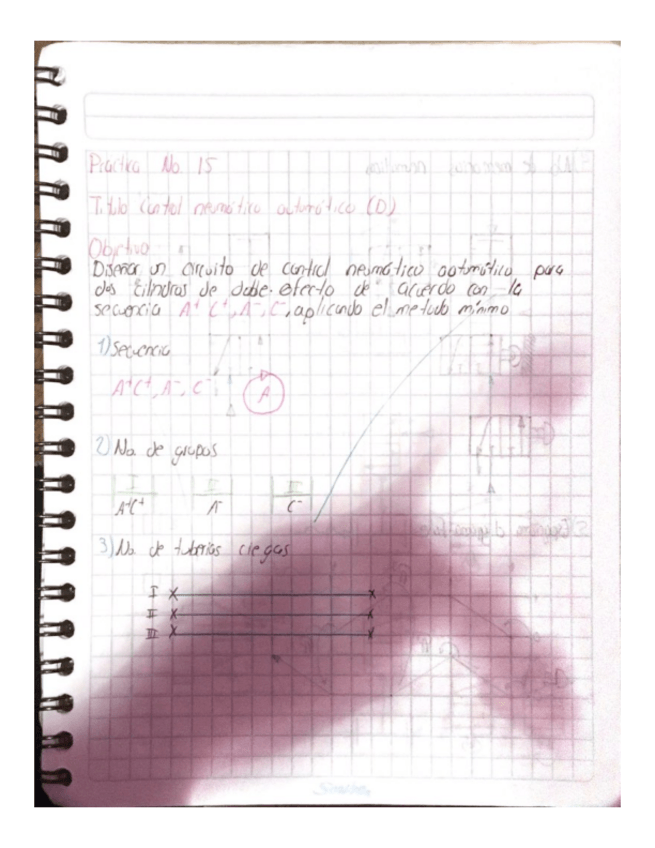 Práctica No. 15
Título Control neumático automático (D)
Objetivo
Diseñar un circuito de control neumático automático para
dos cilindros de doble efecto de acuerdo con la
secuencia A⁺ C⁺, A⁻, C⁻, aplicando el metodo mínimo
1) Secuencia
A⁺C⁺, A⁻, C⁻ A
2) No. de grupos
I II III
A⁺C⁺ A⁻ C⁻
3) No. de tuberias ciegas
I X X
II X X
III X X